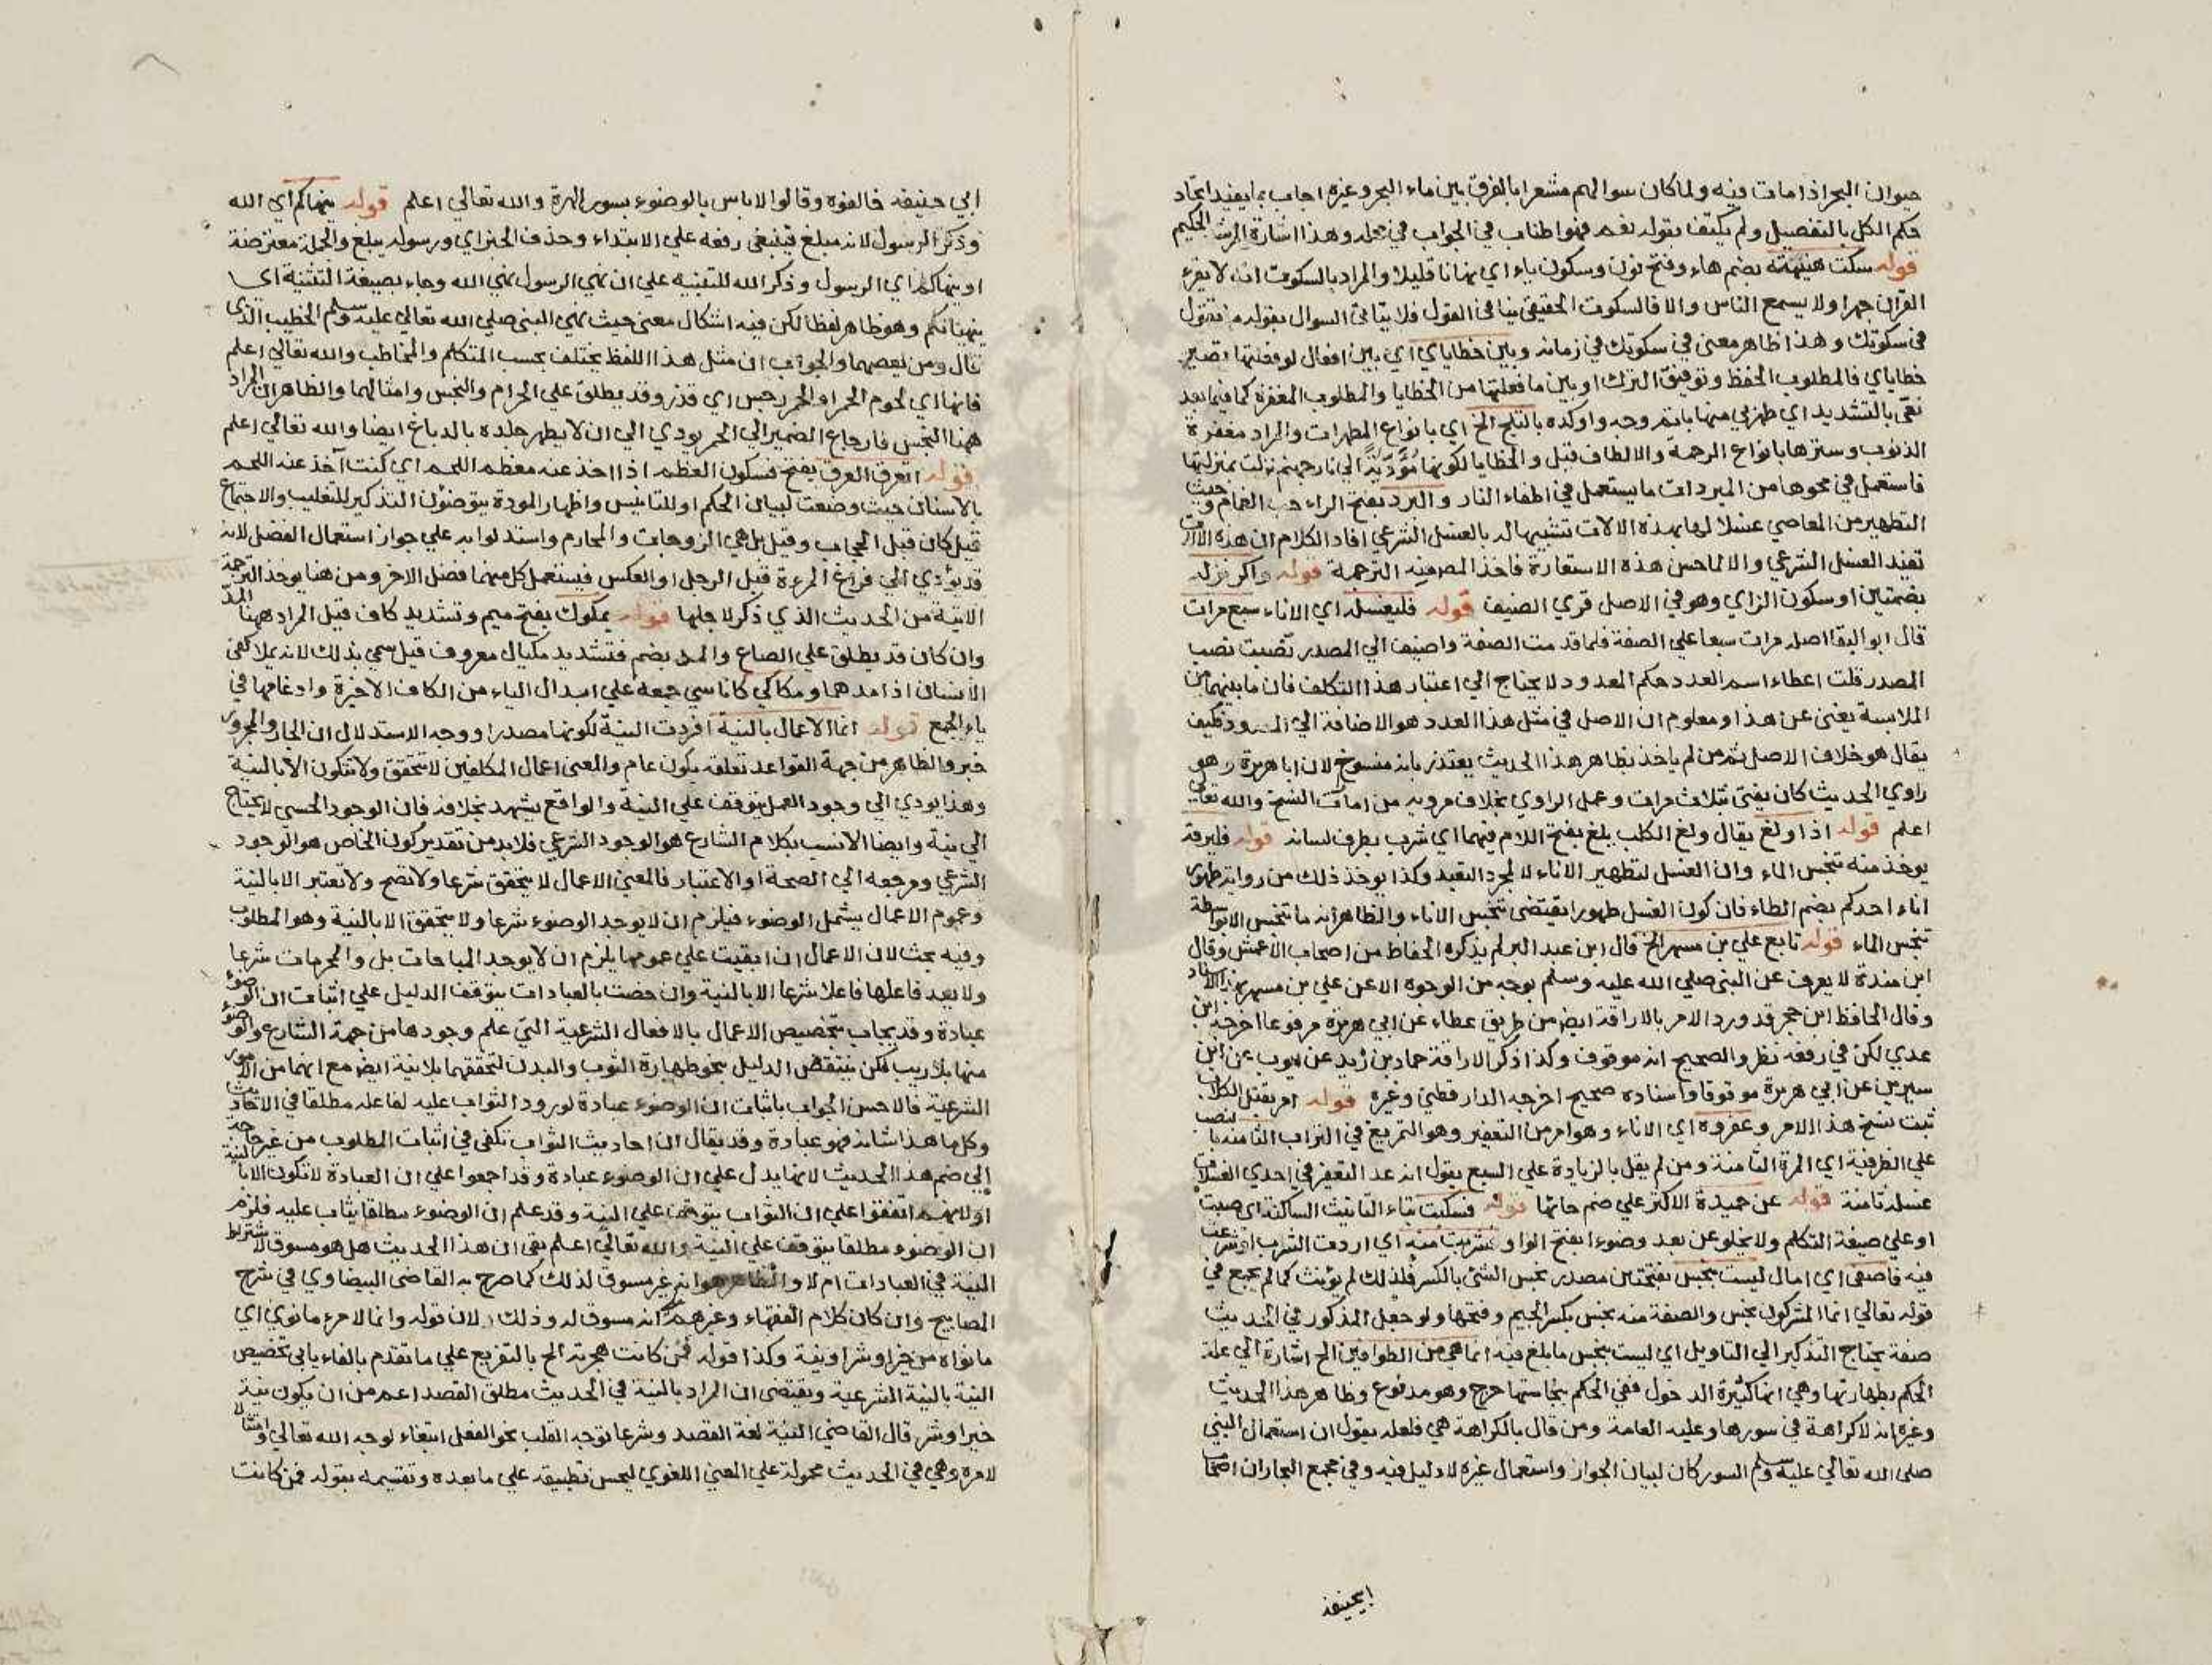 حيوان البحر اذا مات فيه ولما كان سوالهم مشعرا بالفرق بين ماء البحر وغيره اجاب بما يفيد اتحاد
حكم الكل بالتفصيل ولم يكتف بقوله نعم فهو اطناب في الجواب في محله وهذا اشارة المرشد الحكيم
قوله سكت هنيهة بضم هاء وفتح نون وسكون ياء اي زمانا قليلا والمراد بالسكوت ان لا يقرء
القران جهرا ولا يسمع الناس والا فالسكوت الحقيقي ينافي القول فلا يتاتى السوال بقوله ما تقول
في سكوتك وهذا ظاهر معنى في سكوتك في زمانه وبين خطاياي اي بين افعال لو فعلتها تصير
خطاياي فالمطلوب الحفظ وتوفيق الترك او بين ما فعلتها من الخطايا والمطلوب المغفرة كما فيما بعد
نقني بالتشديد اي طهرني منها باتم وجه واوكده بالثلج الخ اي بانواع المطهرات والمراد مغفرة
الذنوب وسترها بانواع الرحمة والالطاف قيل والخطايا لكونها مؤدية الي نار جهنم نزلت بمنزلتها
فاستعمل في محوها من المبردات ما يستعمل في اطفاء النار والبرد بفتح الراء حب الغمام وحيث
التطهير من المعاصي غسلا لها بهذه الالات تشبيها له بالغسل الشرعي افاد الكلام ان هذه الالات
تفيد الغسل الشرعي والا لما حسن هذه الاستعارة فاخذ المصر فيه الترجمة قوله واكرم نزله
بضمتين او سكون الزاي وهو في الاصل قري الضيف قوله فليغسله اي الاناء سبع مرات
قال ابو البقا اصله مرات سبعا علي الصفة فلما قدمت الصفة واضيف الي المصدر نصبت نصب
المصدر قلت اعطاء اسم العدد حكم المعدود لا يحتاج الي اعتبار هذا التكلف فان ما بينهما من
الملابسة يغني عن هذا ومعلوم ان الاصل في مثل هذا العدد هو الاضافة الي المعدود فكيف
يقال هو خلاف الاصل ثم من لم ياخذ بظاهر هذا الحديث يعتذر بانه منسوخ لان ابا هريرة وهو
راوي الحديث كان يفتي بثلاث مرات وعمل الراوي بخلاف مرويه من امارات النسخ والله تعالي
اعلم قوله اذا ولغ يقال ولغ الكلب يلغ بفتح اللام فيهما اي شرب بطرف لسانه قوله فليرقه
يوخذ منه تنجس الماء وان الغسل لتطهير الاناء لا لمجرد التعبد وكذا يوخذ ذلك من رواية طهور
اناء احدكم بضم الطاء فان كون الغسل طهورا يقتضى تنجس الاناء والظاهر انه ما تنجس الا بواسطة
تنجس الماء قوله تابع علي بن مسهر الخ قال ابن عبد البر لم يذكره الحفاظ من اصحاب الاعمش وقال
ابن مندة لا يعرف عن النبي صلي الله عليه وسلم بوجه من الوجوه الا عن علي بن مسهر بهذا الاسناد
وقال الحافظ ابن حجر قد ورد الامر بالاراقة ايض من طريق عطاء عن ابي هريرة مرفوعا اخرجه ابن
عدي لكن في رفعه نظر والصحيح انه موقوف وكذا ذكر الاراقة حماد بن زيد عن ايوب عن ابن
سيرين عن ابي هريرة موقوفا واسناده صحيح اخرجه الدارقطني وغيره قوله امر بقتل الكلاب
ثبت نسخ هذا الامر وعفروه اي الاناء وهو امر من التعفير وهو التمريغ في التراب الثامنة بالنصب
علي الظرفية اي المرة الثامنة ومن لم يقل بالزيادة علي السبع يقول انه عد التعفير في احدي الغسلات
غسلة ثامنة قوله عن حميدة الاكثر علي ضم حائها قوله فسكبت بتاء التانيث الساكنة اي صبت
او علي صيغة التكلم ولا يخلو عن بعد وضوءا بفتح الواو فشربت منه اي اردت الشرب او شرعت
فيه فاصغى اي امال ليست بنجس بفتحتين مصدر نجس الشئ بالكسر فلذلك لم يؤنث كما لم يجمع في
قوله تعالي انما المشركون نجس والصفة منه نجس بكسر الجيم وفتحها ولو جعل المذكور في الحديث
صفة يحتاج التذكير الي التاويل اي ليست بنجس ما يلغ فيه انما هي من الطوافين الخ اشارة الي علة
الحكم بطهارتها وهي انها كثيرة الدخول ففي الحكم بنجاستها حرج وهو مدفوع وظاهر هذا الحديث
وغيره انه لا كراهة في سورها وعليه العامة ومن قال بالكراهة هي فلعله يقول ان استعمال النبي
صلى الله تعالي عليه وسلم السور كان لبيان الجواز واستعمال غيره لا دليل فيه وفي مجمع البحار ان اصحاب
ابي حنيفة
ابي حنيفه خالفوه وقالوا لاباس بالوضوء بسور الهرة والله تعالي اعلم قوله ينهاكم اي الله
وذكر الرسول لانه مبلغ فينبغي رفعه علي الابتداء وحذف الخبر اي ورسوله يبلغ والجملة معترضة
او ينهاكم اي الرسول وذكر الله للتنبيه علي ان نهي الرسول نهي الله وجاء بصيغة التثنية اي
ينهيانكم وهو ظاهر لفظا لكن فيه اشكال معنى حيث نهي النبي صلي الله تعالي عليه وسلم الخطيب الذي
قال ومن يعصهما والجواب ان مثل هذا اللفظ يختلف بحسب المتكلم والمخاطب والله تعالي اعلم
فانها اي لحوم الحمر او الحمر رجس اي قذر وقد يطلق علي الحرام والنجس وامثالهما والظاهر ان المراد
ههنا النجس فارجاع الضمير الي الحمر يودي الي ان لا يطهر جلده بالدباغ ايضا والله تعالي اعلم
قوله اتعرق العرق بفتح فسكون العظم اذا اخذ عنه معظم اللحم اي كنت آخذ عنه اللحم
بالاسنان حيث وضعت لبيان الحكم او للتانيس واظهار المودة يتوضئون التذكير للتغليب والاجتماع
قيل كان قبل الحجاب وقيل بل هي الزوجات والمحارم واستدلوا به علي جواز استعمال الفضل لانه
قد يؤدي الي فراغ المرءة قبل الرجل او العكس فيستعمل كل منهما فضل الاخر ومن هنا يوخذ الترجمة
الاتية من الحديث الذي ذكر لاجلها قوله بمكوك بفتح ميم وتشديد كاف قيل المراد ههنا المد
وان كان قد يطلق علي الصاع والمد بضم فتشديد مكيال معروف قيل سمي بذلك لانه يملا كفي
الانسان اذا مدهما ومكاكي كاناسي جمعه علي ابدال الياء من الكاف الاخيرة وادغامها في
ياء الجمع قوله انما الاعمال بالنية افردت النية لكونها مصدرا ووجه الاستدلال ان الجار والمجرور
خبر والظاهر من جهة القواعد تعلقه بكون عام والمعنى اعمال المكلفين لا تتحقق ولا تتكون الا بالنية
وهذا يودي الي وجود العمل يتوقف علي النية والواقع يشهد بخلافه فان الوجود الحسي لا يحتاج
الي نية وايضا الانسب بكلام الشارع هو الوجود الشرعي فلابد من تقدير كون الخاص هو الوجود
الشرعي ومرجعه الي الصحة او الاعتبار فالمعنى الاعمال لا يتحقق شرعا ولا تصح ولا تعتبر الا بالنية
وعموم الاعمال يشمل الوضوء فيلزم ان لا يوجد الوضوء شرعا ولا يتحقق الا بالنية وهو المطلوب
وفيه بحث لان الاعمال ان ابقيت علي عمومها يلزم ان لا يوجد المباحات بل والمحرمات شرعا
ولا يعد فاعلها فاعلا شرعا الا بالنية وان خصت بالعبادات يتوقف الدليل علي اثبات ان الوضوء
عبادة وقد يجاب بتخصيص الاعمال بالافعال الشرعية التي علم وجودها من جهة الشارع والوضوء
منها بلا ريب لكن ينتقض الدليل بنحو طهارة الثوب والبدن لتحققهما بلا نية ايض مع انهما من الامور
الشرعية فالاحسن الجواب باثبات ان الوضوء عبادة لورود الثواب عليه لفاعله مطلقا في الاحاديث
وكل ما هذا شانه فهو عبادة وقد يقال ان احاديث الثواب تكفي في اثبات المطلوب من غير حاجة
الي ضم هذا الحديث لانها يدل علي ان الوضوء عبادة وقد اجمعوا علي ان العبادة لا تكون الا بالنية
او لانهم اتفقوا علي ان الثواب يتوقف علي النية وقد علم ان الوضوء مطلقا يثاب عليه فلزم
ان الوضوء مطلقا يتوقف علي النية والله تعالي اعلم بقى ان هذا الحديث هل هو مسوق لاشتراط
النية في العبادات ام لا والظاهر هو انه غير مسوق لذلك كما صرح به القاضى البيضاوي في شرح
المصابيح وان كان كلام الفقهاء وغيرهم انه مسوق له وذلك لان قوله وانما لامرء ما نوي اي
ما نواه من خير او شر او نية وكذا قوله فمن كانت هجرته الخ بالتفريع علي ما تقدم بالفاء يابى تخصيص
النية بالنية الشرعية ويقتضى ان المراد بالنية في الحديث مطلق القصد اعم من ان يكون نية
خير او شر قال القاضي النية لغة القصد وشرعا توجه القلب نحو الفعل ابتغاء لوجه الله تعالي وامتثالا
لامره وهي في الحديث محمولة علي المعنى اللغوي ليحسن تطبيقه علي ما بعده وتقسيمه بقوله فمن كانت